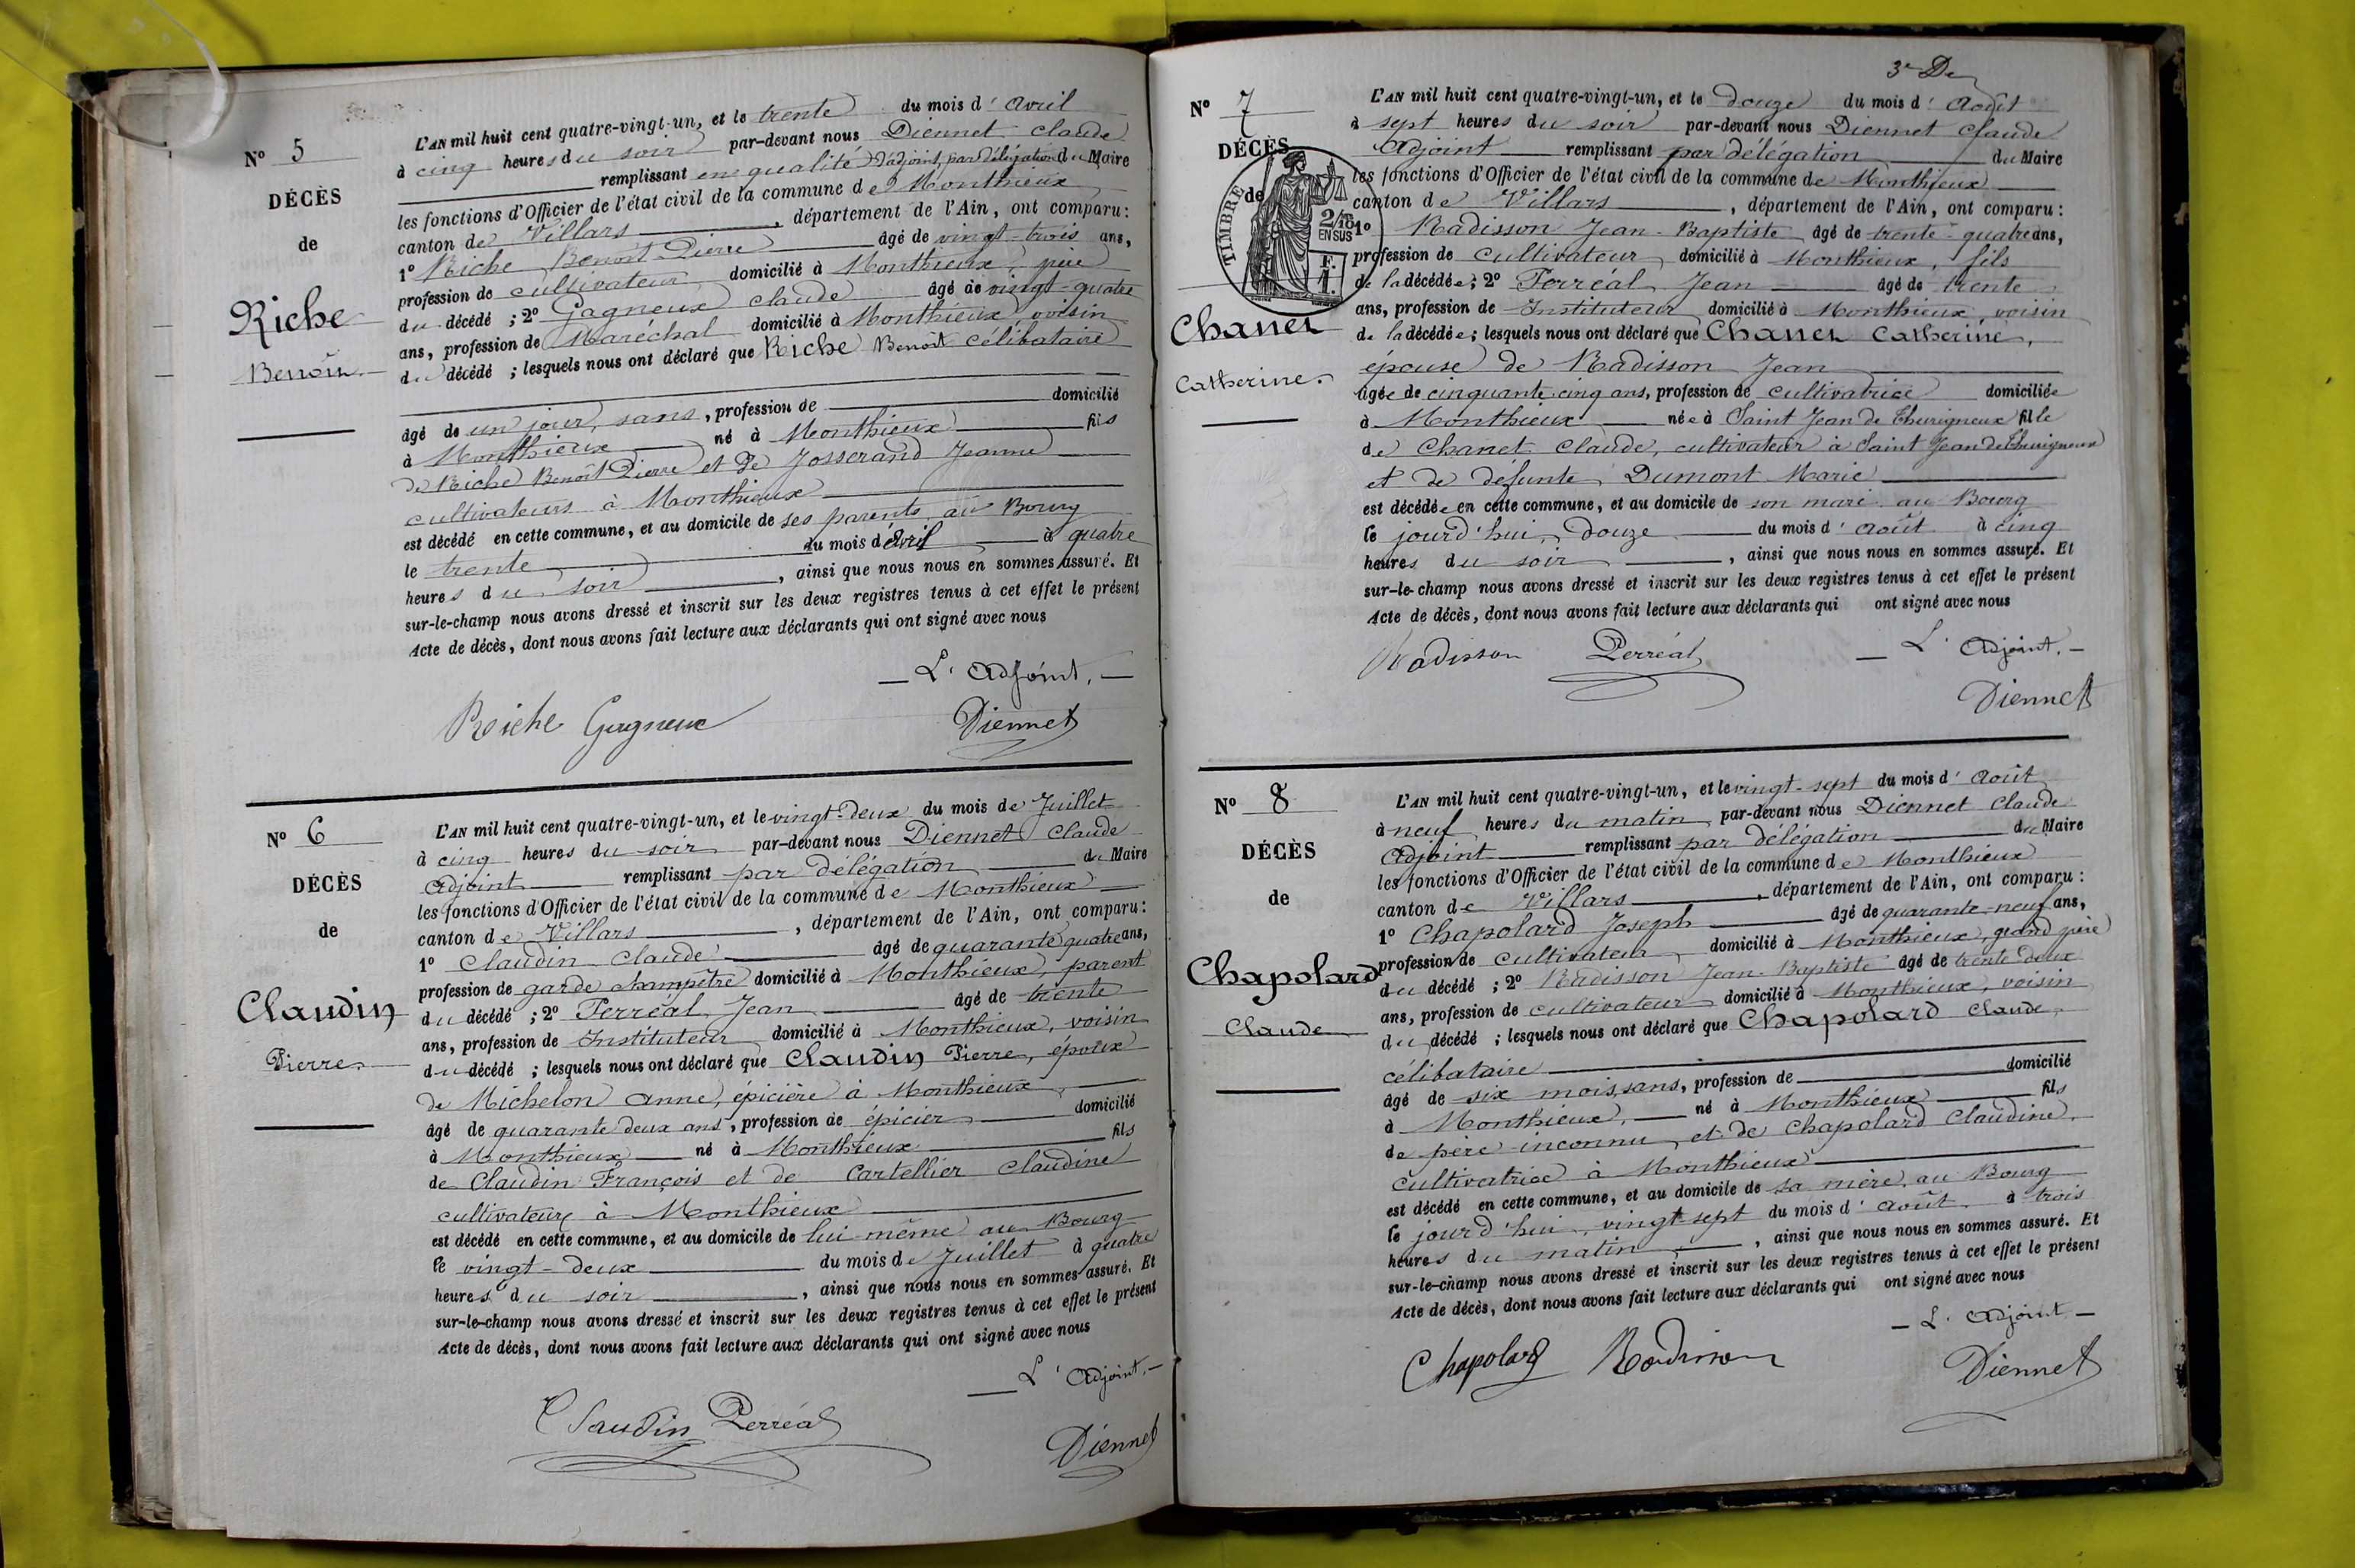 N° 5
DÉCÈS
de
Riche
Benoît
L'AN mil huit cent quatre-vingt-un, et le trente du mois d'Avril
à cinq heures du soir par-devant nous Diennet Claude
remplissant en qualité d'adjoint par délégation du Maire
les fonctions d'Officier de l'état civil de la commune de Monthieux
canton de Villars, département de l'Ain, ont comparu:
1° Riche Benoît Pierre âgé de vingt-trois ans,
profession de cultivateur domicilié à Monthieux père
du décédé ; 2° Gagneux Claude âgé de vingt-quatre
ans, profession de Maréchal domicilié à Monthieux voisin
du décédé ; lesquels nous ont déclaré que Riche Benoît célibataire
âgé de un jour, sans, profession de domicilié
à Monthieux né à Monthieux fils
de Riche Benoît Pierre et de Josserand Jeanne
cultivateurs à Monthieux
est décédé en cette commune, et au domicile de ses parents au Bourg
le trente du mois d'Avril à quatre
heures du soir, ainsi que nous nous en sommes assuré. Et
sur-le-champ nous avons dressé et inscrit sur les deux registres tenus à cet effet le présent
Acte de décès, dont nous avons fait lecture aux déclarants qui ont signé avec nous
L'Adjoint,
Riche Gagneux Diennet
N° 6
DÉCÈS
de
Claudin
Pierre
L'AN mil huit cent quatre-vingt-un, et le vingt-deux du mois de Juillet
à cinq heures du soir par-devant nous Diennet Claude
Adjoint remplissant par délégation du Maire
les fonctions d'Officier de l'état civil de la commune de Monthieux
canton de Villars, département de l'Ain, ont comparu:
1° Claudin Claude âgé de quarante quatre ans,
profession de garde champêtre domicilié à Monthieux, parent
du décédé ; 2° Perréal Jean âgé de trente
ans, profession de Instituteur domicilié à Monthieux, voisin
du décédé ; lesquels nous ont déclaré que Claudin Pierre, époux
de Michelon Anne, épicière à Monthieux,
âgé de quarante deux ans, profession de épicier domicilié
à Monthieux né à Monthieux fils
de Claudin François et de Cartellier Claudine
cultivateurs à Monthieux
est décédé en cette commune, et au domicile de lui-même au Bourg
le vingt-deux du mois de Juillet à quatre
heures du soir, ainsi que nous nous en sommes assuré. Et
sur-le-champ nous avons dressé et inscrit sur les deux registres tenus à cet effet le présent
Acte de décès, dont nous avons fait lecture aux déclarants qui ont signé avec nous
L'Adjoint,
Claudin Perréal Diennet
3e De
N° 7
DÉCÈS
de
TIMBRE
2/10 EN SUS
F. 1.
Chanet
Catherine.
L'AN mil huit cent quatre-vingt-un, et le douze du mois d'Août
à sept heures du soir par-devant nous Diennet Claude
Adjoint remplissant par délégation du Maire
les fonctions d'Officier de l'état civil de la commune de Monthieux
canton de Villars, département de l'Ain, ont comparu:
1° Radisson Jean-Baptiste âgé de trente-quatre ans,
profession de cultivateur domicilié à Monthieux, fils
de la décédée ; 2° Perréal Jean âgé de trente
ans, profession de Instituteur domicilié à Monthieux voisin
de la décédée ; lesquels nous ont déclaré que Chanet Catherine,
épouse de Radisson Jean
âgée de cinquante cinq ans, profession de cultivatrice domiciliée
à Monthieux née à Saint Jean de Thurigneux fille
de Chanet Claude, cultivateur à Saint Jean de Thurigneux
et de défunte Dumont Marie
est décédée en cette commune, et au domicile de son mari au Bourg
le jourd'hui douze du mois d'Août à cinq
heures du soir, ainsi que nous nous en sommes assuré. Et
sur-le-champ nous avons dressé et inscrit sur les deux registres tenus à cet effet le présent
Acte de décès, dont nous avons fait lecture aux déclarants qui ont signé avec nous
Radisson Perréal L'Adjoint,
Diennet
N° 8
DÉCÈS
de
Chapolard
Claude
L'AN mil huit cent quatre-vingt-un, et le vingt-sept du mois d'Août
à neuf heures du matin par-devant nous Diennet Claude
Adjoint remplissant par délégation du Maire
les fonctions d'Officier de l'état civil de la commune de Monthieux
canton de Villars, département de l'Ain, ont comparu:
1° Chapolard Joseph âgé de quarante-neuf ans,
profession de cultivateur domicilié à Monthieux, grand père
du décédé ; 2° Radisson Jean-Baptiste âgé de trente deux
ans, profession de cultivateur domicilié à Monthieux, voisin
du décédé ; lesquels nous ont déclaré que Chapolard Claude,
célibataire
âgé de six mois, sans, profession de domicilié
à Monthieux, né à Monthieux fils
de père inconnu et de Chapolard Claudine,
cultivatrice à Monthieux
est décédé en cette commune, et au domicile de sa mère, au Bourg
le jourd'hui, vingt-sept du mois d'Août à trois
heures du matin, ainsi que nous nous en sommes assuré. Et
sur-le-champ nous avons dressé et inscrit sur les deux registres tenus à cet effet le présent
Acte de décès, dont nous avons fait lecture aux déclarants qui ont signé avec nous
L'Adjoint
Chapolard Radisson Diennet